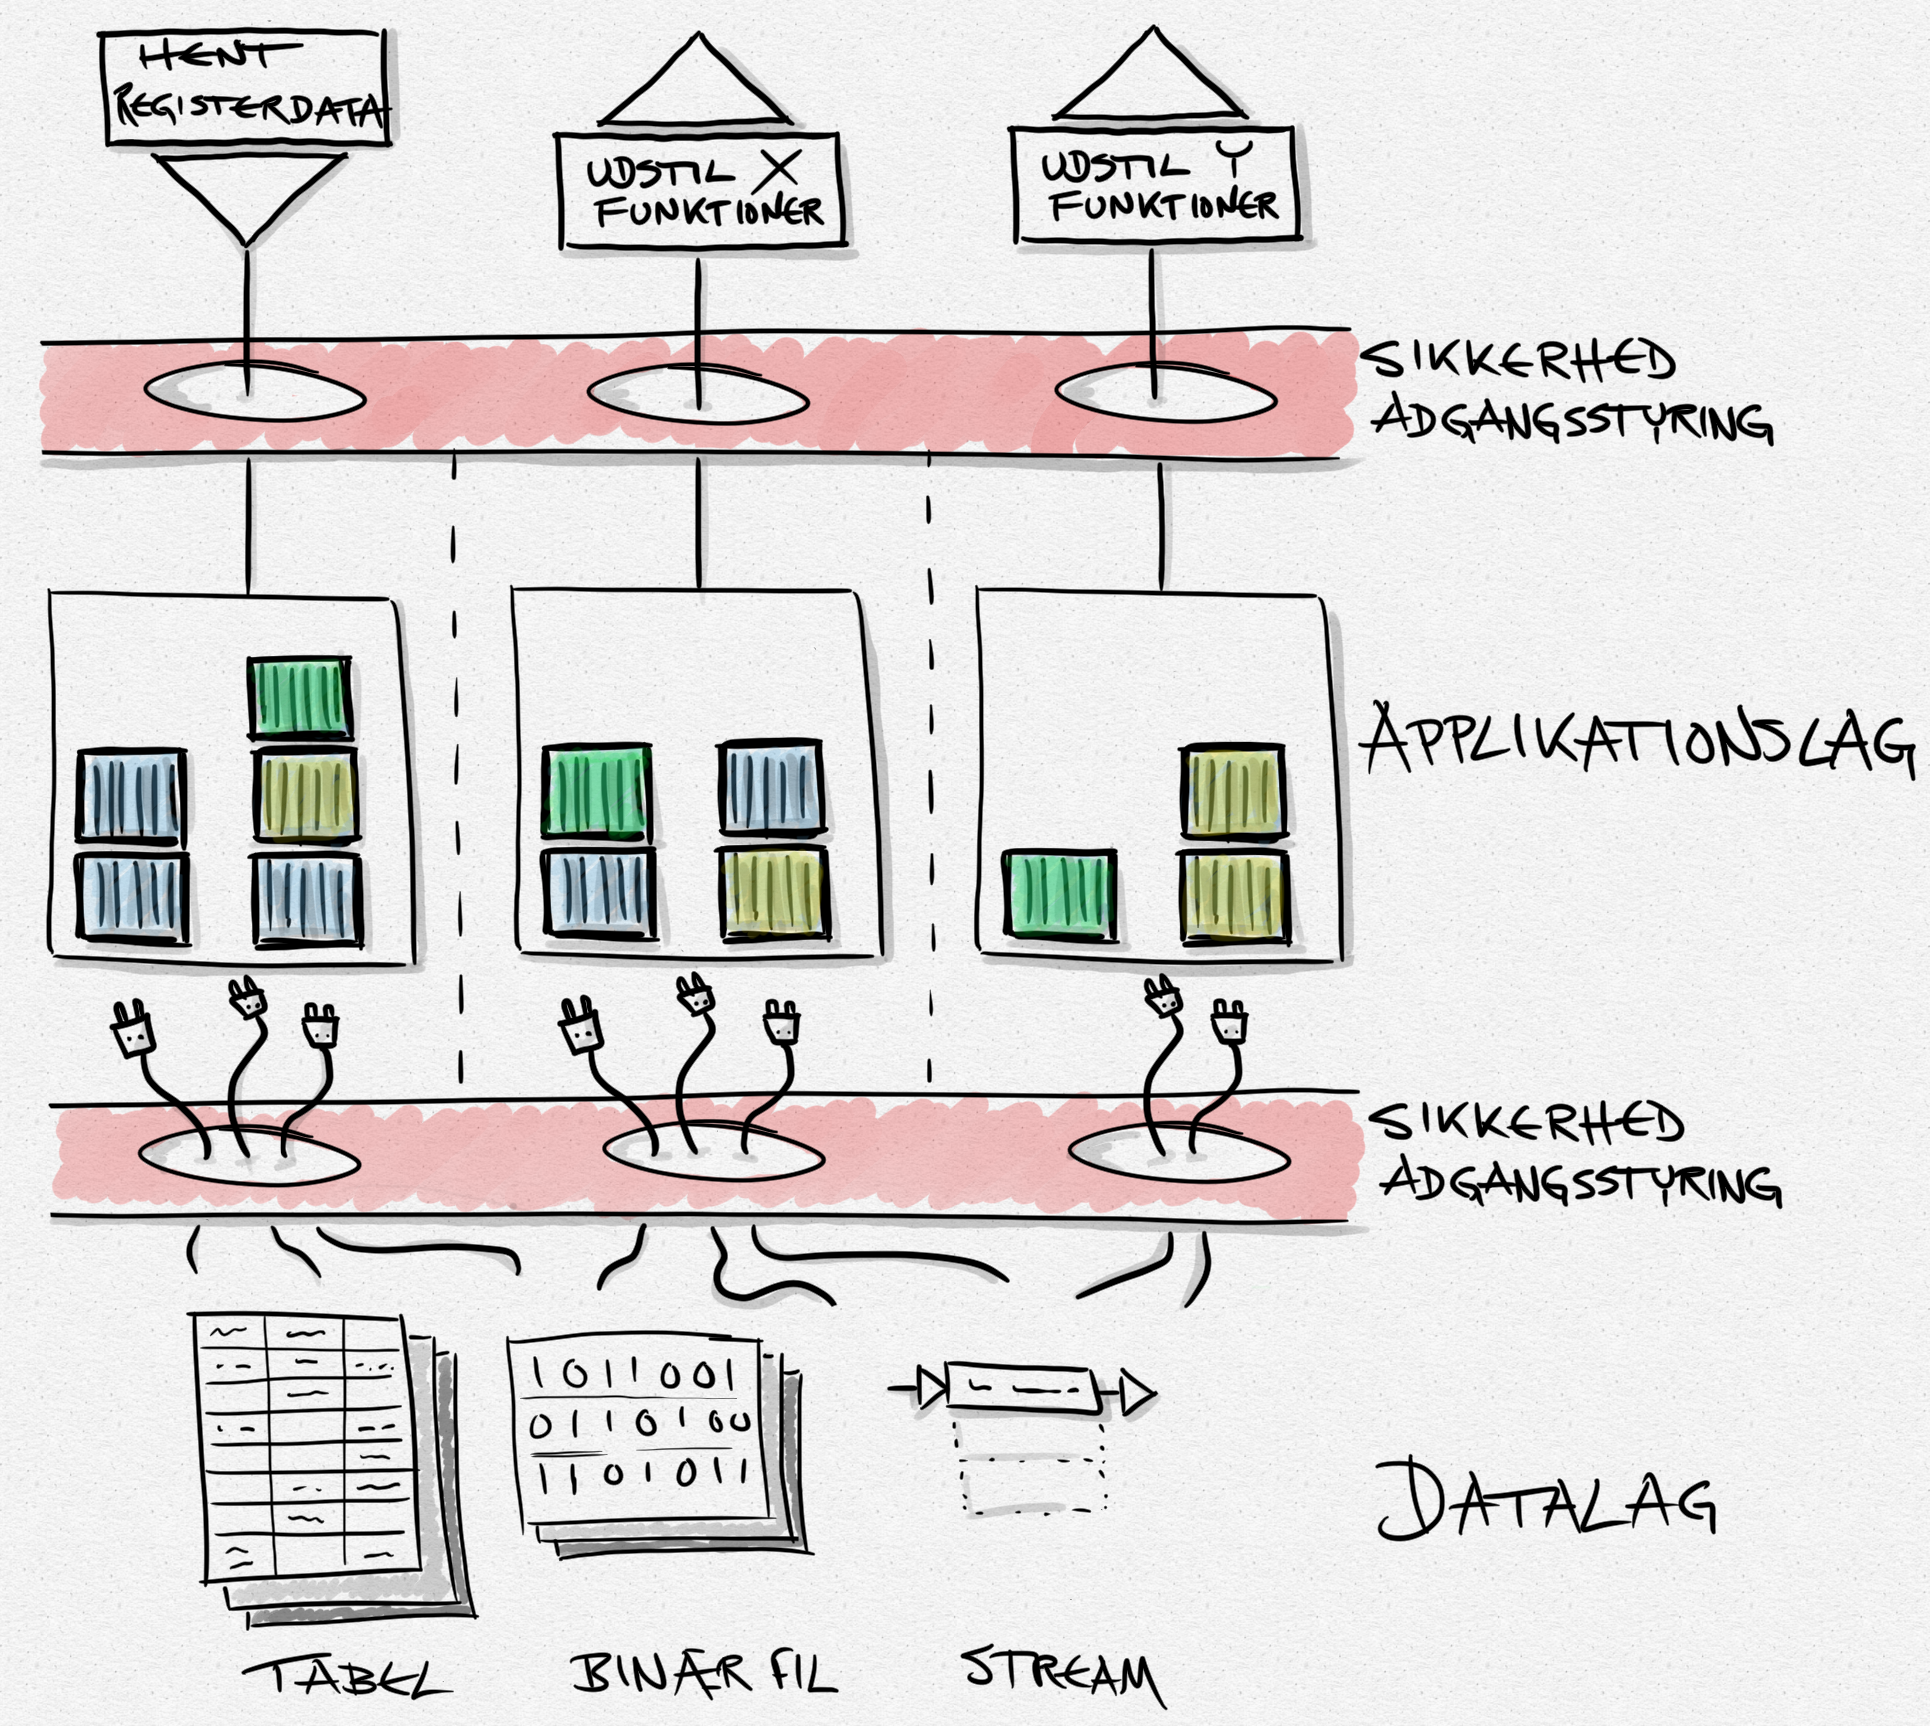 HENT
REGISTERDATA
UDSTIL X
FUNKTIONER
UDSTIL Y
FUNKTIONER
SIKKERHED
ADGANGSSTYRING
APPLIKATIONSLAG
SIKKERHED
ADGANGSSTYRING
1011001
0110100
1101011
DATALAG
TABEL
BINÆR FIL
STREAM